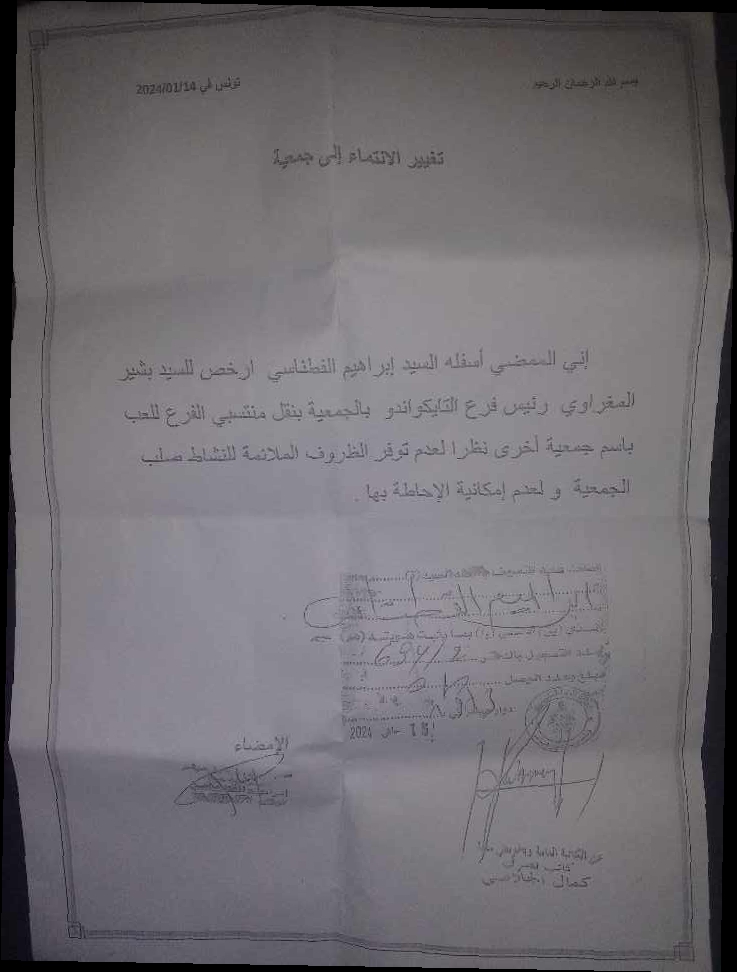 بسم الله الرحمان الرحيم
تونس في 2024/01/14
تغيير الانتماء إلى جمعية
إني الممضي أسفله السيد إبراهيم الفطناسي ارخص للسيد بشير
المغراوي رئيس فرع التايكواندو بالجمعية بنقل منتسبي الفرع للعب
باسم جمعية أخرى نظرا لعدم توفر الظروف الملائمة للنشاط صلب
الجمعية و لعدم إمكانية الإحاطة بها .
إبراهيم
عدد التسجيل بالدفتر
مبلغ وعدد الوصل
15 جانفي 2024
الإمضاء
كمال